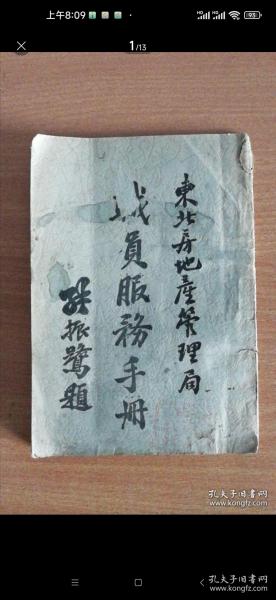 上午8:09
93
1/13
東北房地產管理局
職員服務手冊
張振鷺題
孔夫子旧书网
www.kongfz.com
孔夫子旧书网
www.kongfz.com